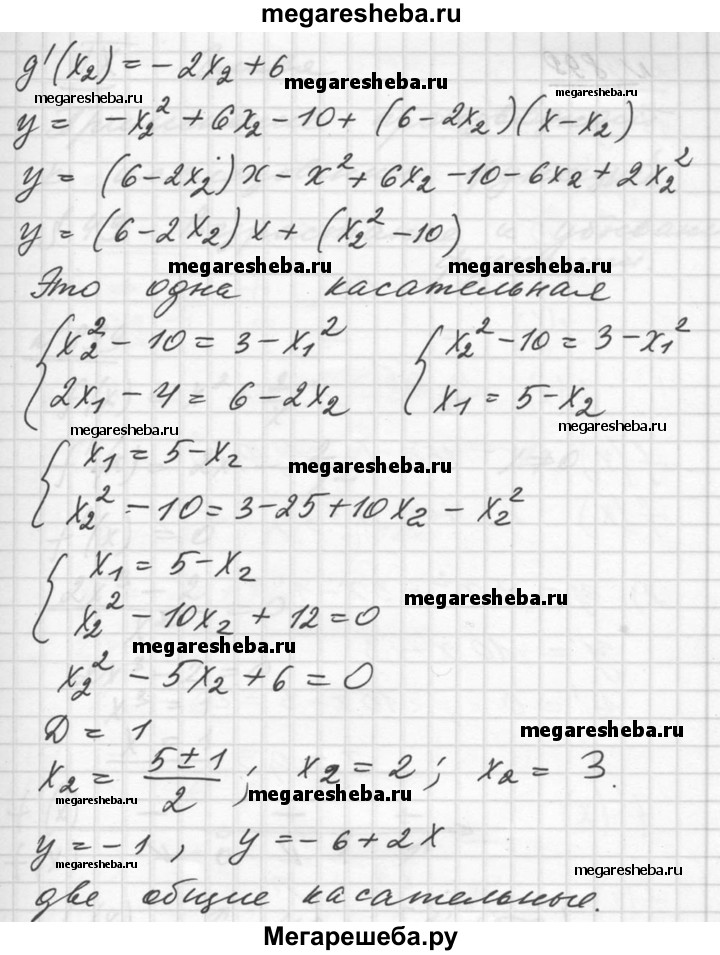 megaresheba.ru
g'(x₂) = -2x₂ + 6
megaresheba.ru
megaresheba.ru
y = -x₂² + 6x₂ - 10 + (6 - 2x₂)(x - x₂)
y = (6 - 2x₂)x - x² + 6x₂ - 10 - 6x₂ + 2x₂²
y = (6 - 2x₂)x + (x₂² - 10)
megaresheba.ru
megaresheba.ru
Это одна касательная
{ x₂² - 10 = 3 - x₁² { x₂² - 10 = 3 - x₁²
2x₁ - 4 = 6 - 2x₂ x₁ = 5 - x₂
megaresheba.ru
megaresheba.ru
{ x₁ = 5 - x₂
megaresheba.ru
x₂² - 10 = 3 - 25 + 10x₂ - x₂²
{ x₁ = 5 - x₂
megaresheba.ru
x₂² - 10x₂ + 12 = 0
megaresheba.ru
x₂² - 5x₂ + 6 = 0
Д = 1
megaresheba.ru
x₂ = (5 ± 1)/2 ; x₂ = 2 ; x₂ = 3.
megaresheba.ru
megaresheba.ru
y = -1 , y = -6 + 2x
megaresheba.ru
megaresheba.ru
две общие касательные.
Мегарешеба.ру